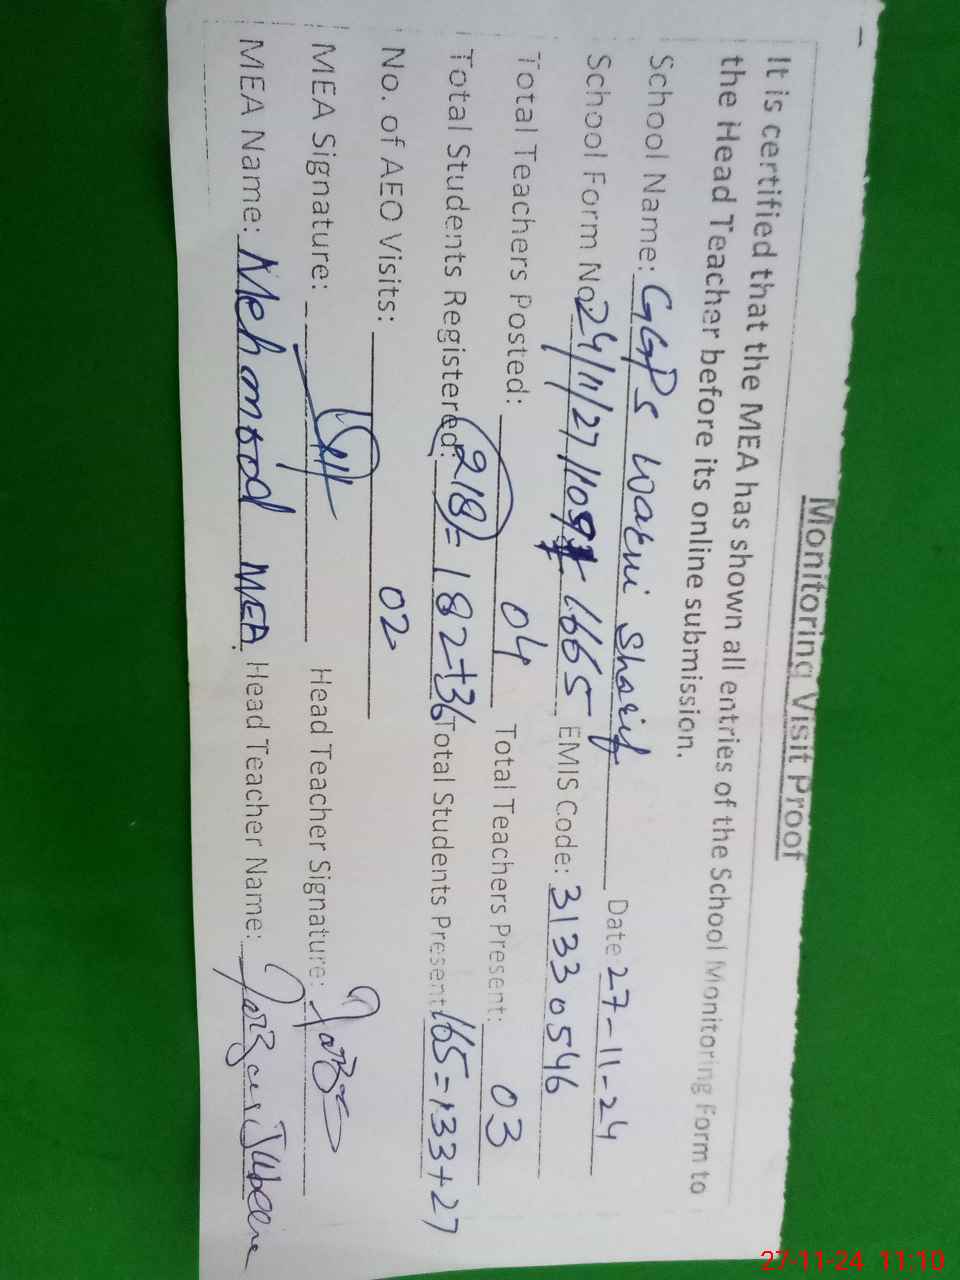 Monitoring Visit Proof
It is certified that the MEA has shown all entries of the School Monitoring Form to
the Head Teacher before its online submission.
School Name: GGPS Wakni Sharif Date 27-11-24
School Form No 24/11/27/1109 1665 EMIS Code: 31330546
Total Teachers Posted: 04 Total Teachers Present: 03
Total Students Registered: 218 = 182+36 Total Students Present 165=133+27
No. of AEO Visits: 02
MEA Signature: Head Teacher Signature:
MEA Name: Mehmood MEA. Head Teacher Name:
27-11-24 11:10